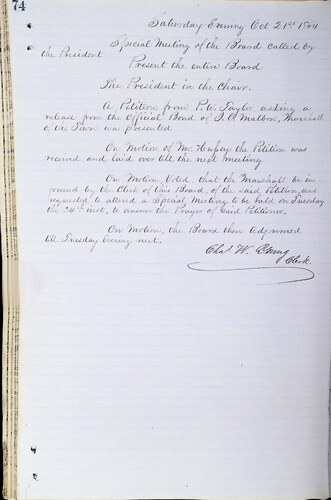 74
Saturday Evening Oct 21st
Special Meeting of the Board called by
the President
Present the entire Board
The President in the Chair.
A Petition from P. W. Taylor, asking a
release from the Official Bond of J. A. Marshall
of the Town was presented
On Motion of Mr. the Petition was
received and laid over till the next meeting
On Motion, Voted, that the Marshall be in-
formed by the Clerk of this Board, of the said Petition, and
requested to attend a Special Meeting to be held on Tuesday
the 24th inst, to answer the Prayer of Said Petitioner.
On Motion, the Board then adjourned
till Tuesday Evening next.
Chas W.
Clerk.